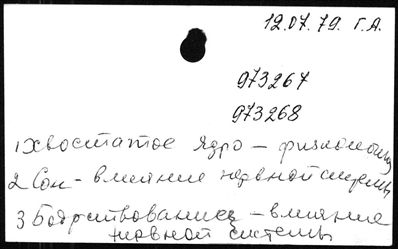 12.07.79. Г.А.
973267
973268
1 Хвостатое ядро – физиология
2 Сон – влияние нервной системы
3 Бодрствование – влияние
нервной системы